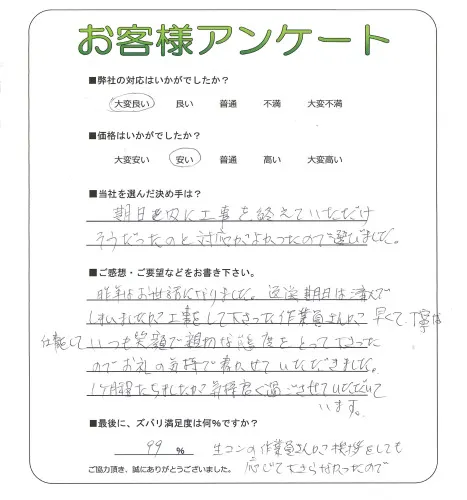 お客様アンケート
■弊社の対応はいかがでしたか？
大変良い 良い 普通 不満 大変不満
■価格はいかがでしたか？
大変安い 安い 普通 高い 大変高い
■当社を選んだ決め手は？
期日以内に工事を終えていただけ
そうだったのと対応がよかったので選びました。
■ご感想・ご要望などをお書き下さい。
昨年はお世話になりました。返送期日は済んで
しまいましたが工事をして下さった作業員さんが 早くて、丁寧な
仕事をして いつも笑顔で親切な態度をとって下さった
のでお礼の気持で書かせていただきました。
1ケ月程たちましたが気持良く過ごさせていただいて
います。
■最後に、ズバリ満足度は何%ですか？
99 % 生コンの作業員さんが挨拶をしても
応じて下さらなかったので
ご協力頂き、誠にありがとうございました。